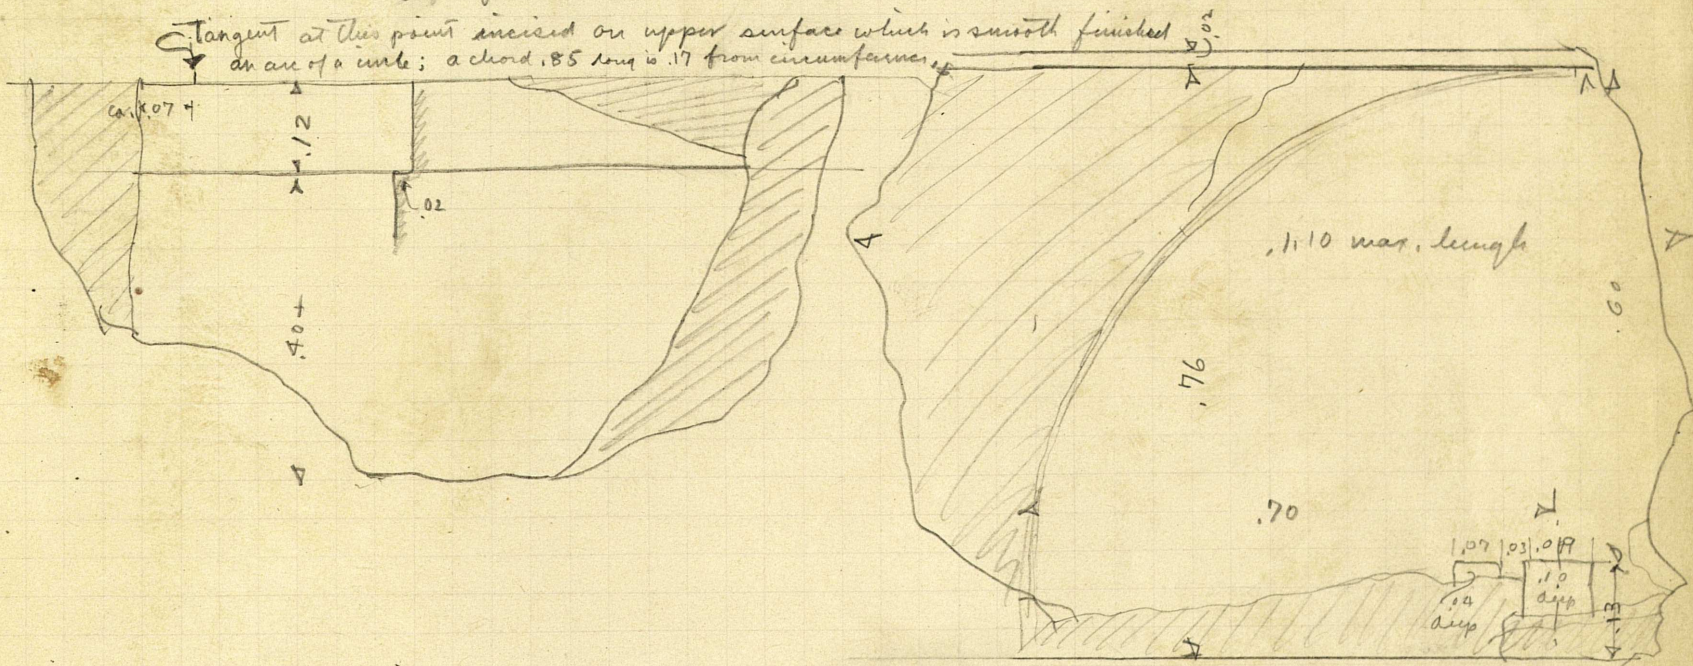 Tangent at this point incised on upper surface which is smooth finished
an arc of a circle; a chord .85 long is .17 from circumference.
.02
ca. .07+
.12
.02
.40+
1.10 max. length
.60
.76
.70
.07 .03 .09
.10
deep
.04
deep
.13